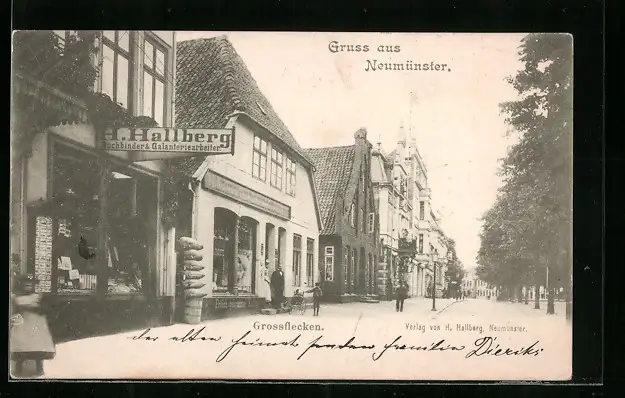 Gruss aus
Neumünster.
H. Hallberg
Buchbinder & Galanteriearbeiter.
Grossflecken.
Verlag von H. Hallberg, Neumünster.
der alten Heimat senden Familien Dieriks